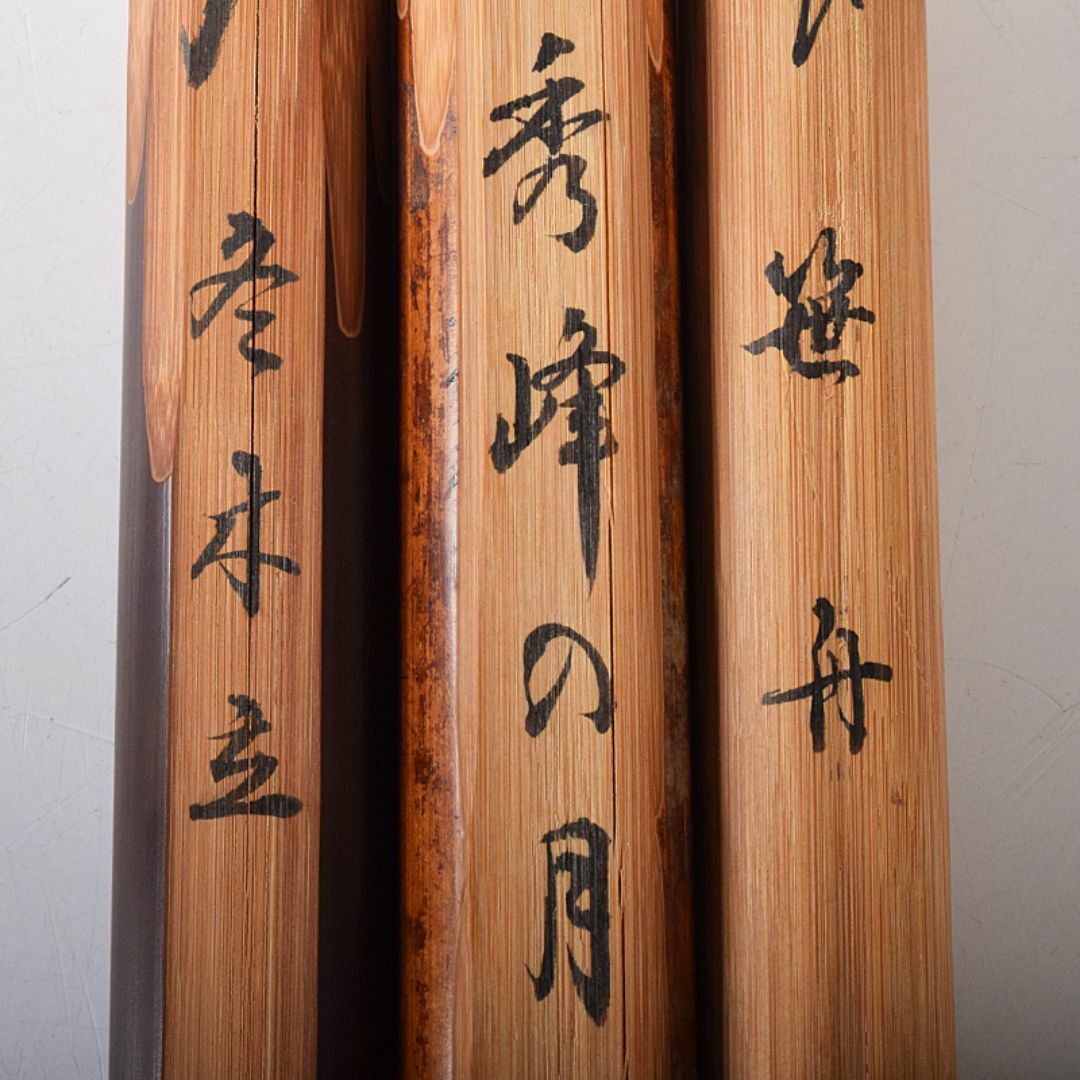 冬木立
秀峰の月
笹舟